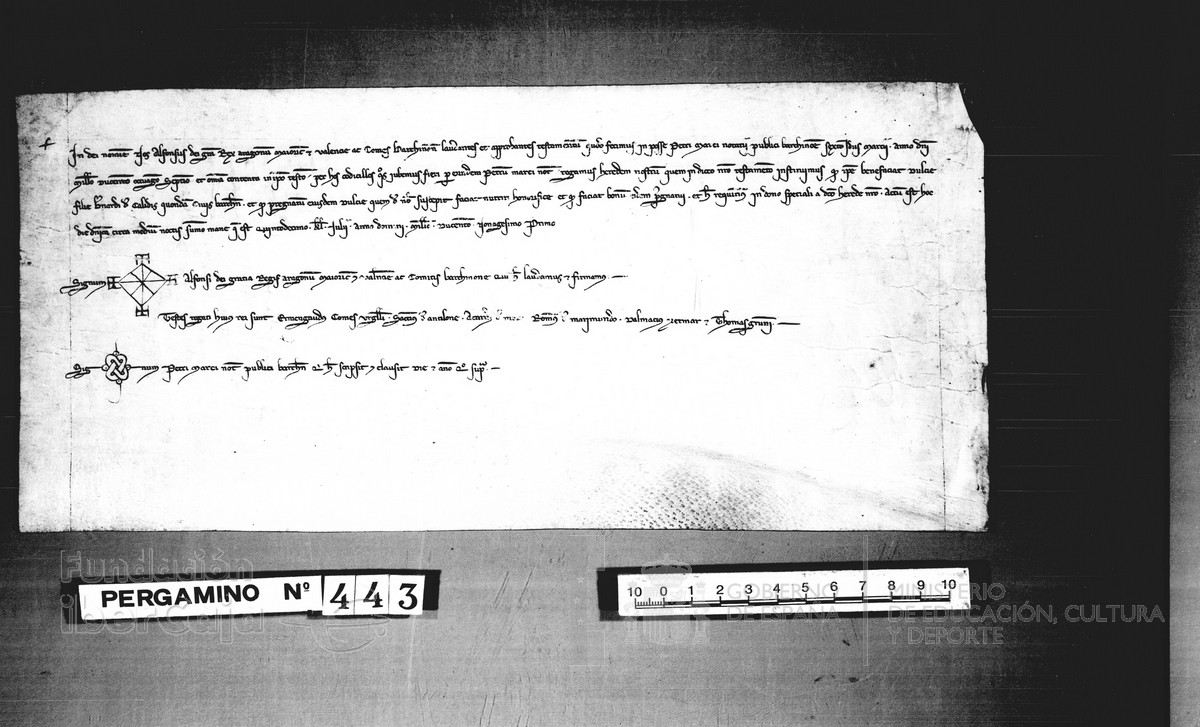 In dei nomine Nos Alfonsus dei gra Rex aragonum maioric et valencie ac Comes barchinone laudantes et approbantes testamentum quod fecimus in posse Petri marci notarii publici barchinone sexto idus marcii anno dni
millo ducentesimo octuagesimo septimo et omnia contenta in ipso testamento per hos codicillos quos iubemus fieri per eundem Petrum marci not rogamus heredem nostrum quem in dicto nro testamento instituimus quod ipse beneficiat dulcie
filie bernardi de Caldis quondam Civis barchn et quod pregnatum eiusdem dulcie quem de nobis suscepit faciat nutriri honorifice et quod faciat bonum et hoc in dono speciali a dco herede nro Actum est hoc
die dnica circa medium noctis summo mane quod est quintodecimo kl Julii anno dni millo ducentesimo Nonagesimo Primo
Signum Alfonsi dei gratia Regis aragonum maioric et valencie ac Comitis barchinone qui hec laudamus et firmamus
Testes rogati huius rei sunt Ermengaudus Comes urgelli de anelone maimundo dalmacius et Thomas
Sig num Petri marci not publici barchn qui hec scripsit et clausit die et anno quo supra
PERGAMINO Nº 443
10 0 1 2 3 4 5 6 7 8 9 10
Fundación
iberCaja
GOBIERNO
DE ESPAÑA
MINISTERIO
DE EDUCACIÓN, CULTURA
Y DEPORTE